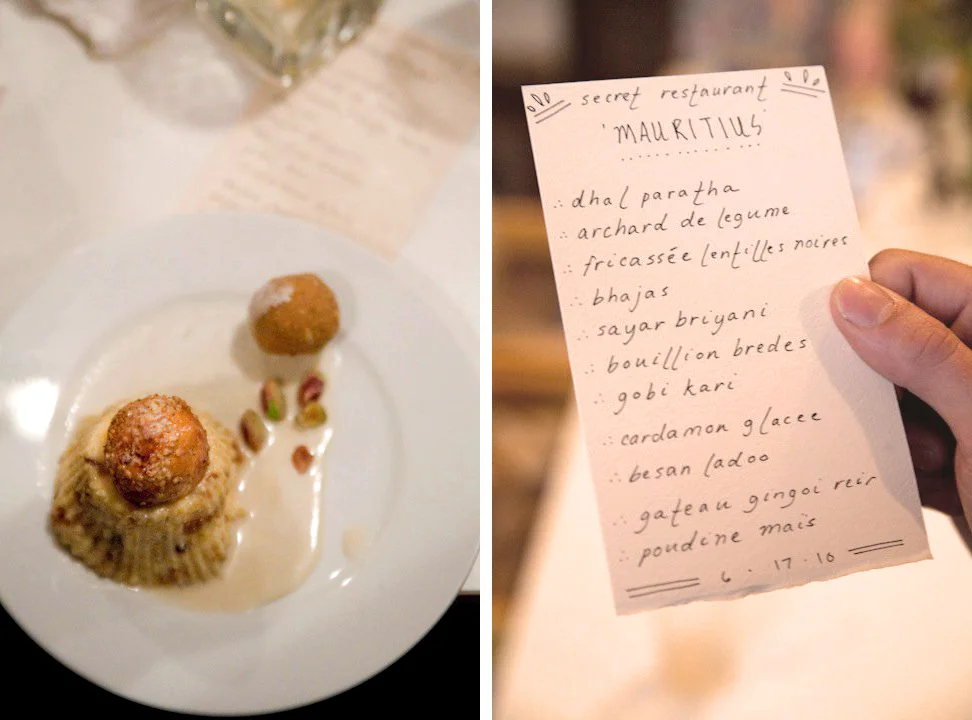 secret restaurant
'MAURITIUS'
dhal paratha
archard de legume
fricassée lentilles noires
bhajas
sayar briyani
bouillion bredes
gobi kari
cardamon glacee
besan ladoo
gateau gingoi reir
poudine maïs
6 · 17 · 10